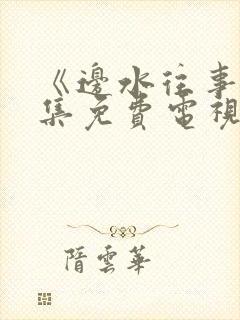 《邊水往事
集免費電視
隋雲華